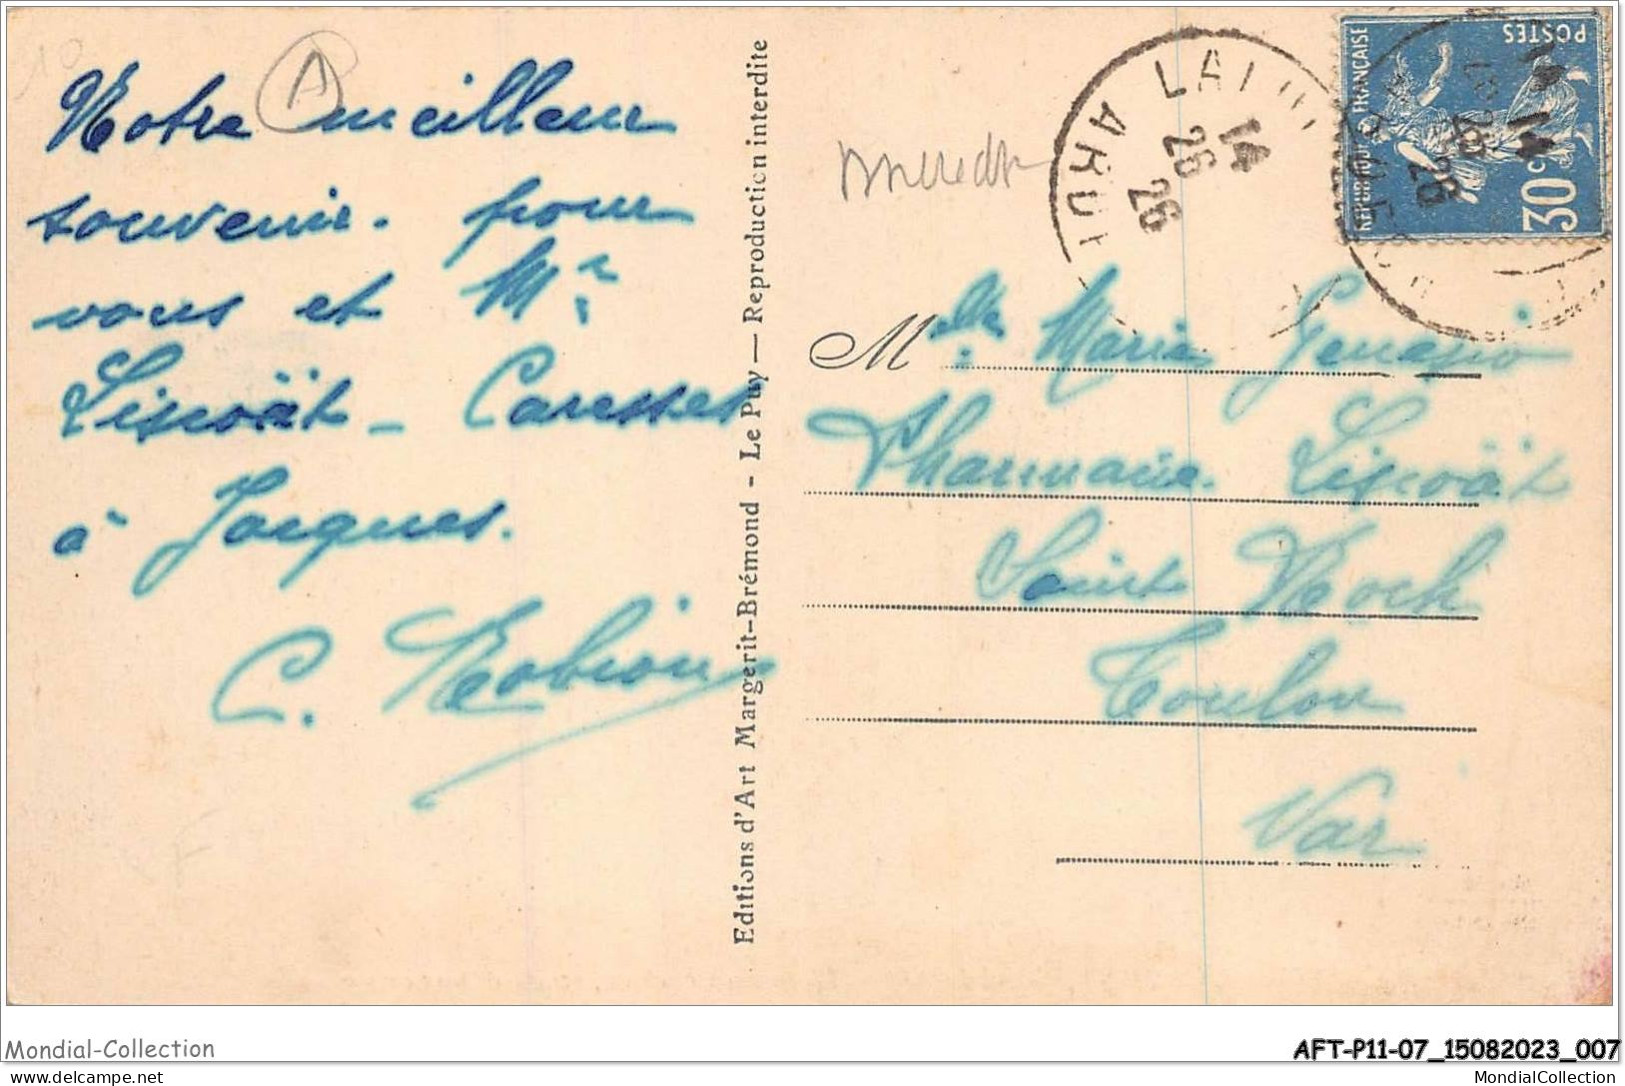 Notre meilleur
souvenir. pour
vous et Mr
Liscoät - Caresses
à Jacques.
C. Robion
A
Editions d'Art Margerit-Brémond - Le Puy — Reproduction interdite
14
26
26
REPUBLIQUE FRANÇAISE
POSTES
30c
Melle Maria
Pharmacie Liscoät
Saint Roch
Toulon
Var
Mondial-Collection
AFT-P11-07_15082023_007
delcampe.net
MondialCollection